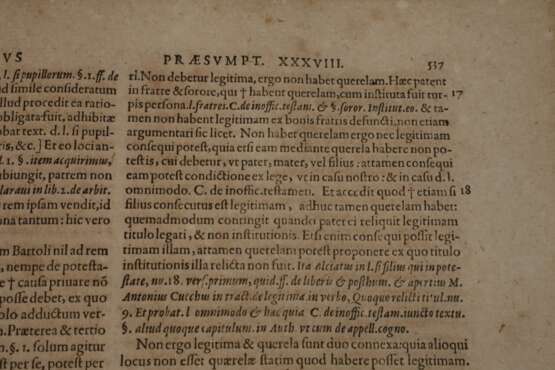 VS
l. si pupillorum. §. 1. ff. de
d simile consideratum
llud procedit ea ratio-
obligata fuit, adhibitæ
obar text. d. l. si pupil-
ris, & c.] Et eo loci an-
l. 1. §. item acquirimus,
biungit, patrem non
laraui in lib. 2. de arbit.
rem ipsam vendit, id
ona tantum: hic vero
m Bartoli nil ad rem
, nempe de potesta-
e † causa priuare nō
posse debet, ex quo
olo adductum ver-
. Præterea & tertio
. §. 1. solum agitur
st per se, potest per
PRÆSVMPT. XXXVIII. 537
ri. Non debetur legitima, ergo non habet querelam. Hæc patent
in fratre & sorore, qui † habent querelam, cum instituta fuit tur- 17
pis persona. l. fratrei. C. de inoffic. testam. & §. soror. Institut. eo. & ta-
men non habent legitimam ex bonis fratris defuncti, non etiam
argumentari sic licet. Non habet querelam ergo nec legitimam
consequi potest, quia etsi eam mediante querela habere non po-
test is, cui debetur, vt pater, mater, vel filius: attamen consequi
eam potest condictione ex lege, vt in casu nostro: & in casu d. l.
omnimodo. C. de inoffic. testamen. Et accedit quod † etiam si 18
filius consecutus est legitimam, adhuc tamen querelam habet:
quemadmodum contingit quando pater ei reliquit legitimam
titulo legati, & non institutionis. Etsi enim consequi possit legi-
timam illam, attamen querelam potest proponere ex quo titulo
institutionis illa relicta non fuit. Ita Alciatus in l. si filius qui in pote-
state, no. 18. vers. primum, quid. ff. de liberis & posthum. & apertius M.
Antonius Cucchus in tract. de legitima in verbo, Quoquo relicti titul. nu.
9. Et probat. l. omnimodo & hac quia C. de inoffic. testam. iuncto textu.
§. aliud quoque capitulum. in Auth. vt cum de appell. cogno.
Non ergo legitima & querela sunt duo connexa: quia alioqui
locus non esset quærelæ statim quod habere posset legitimam.